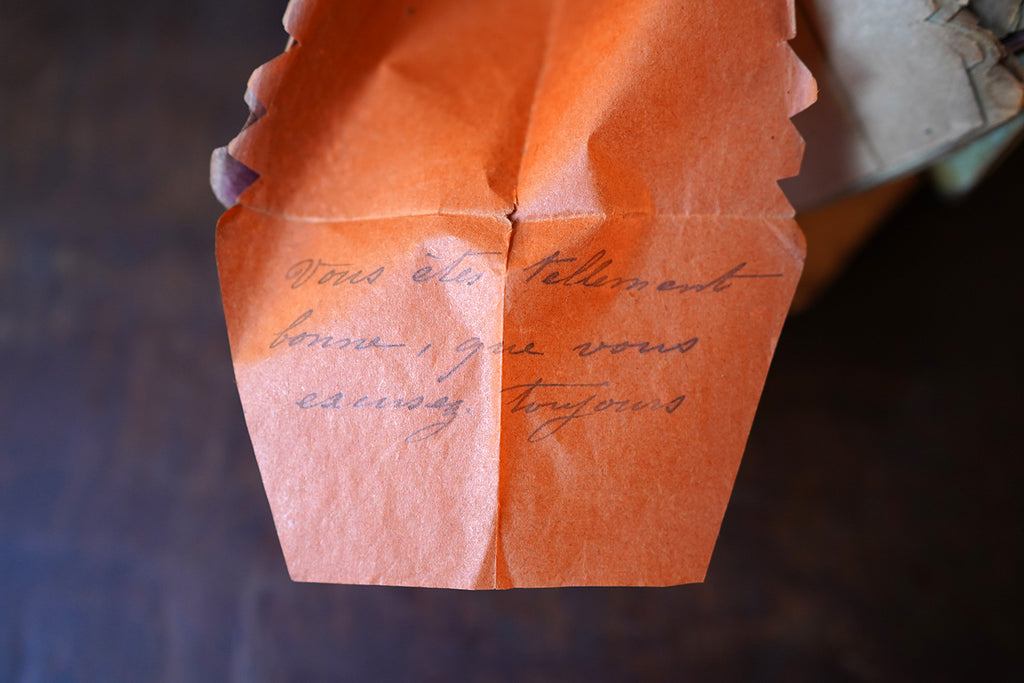 Vous êtes tellement
bonne, que vous
excusez toujours